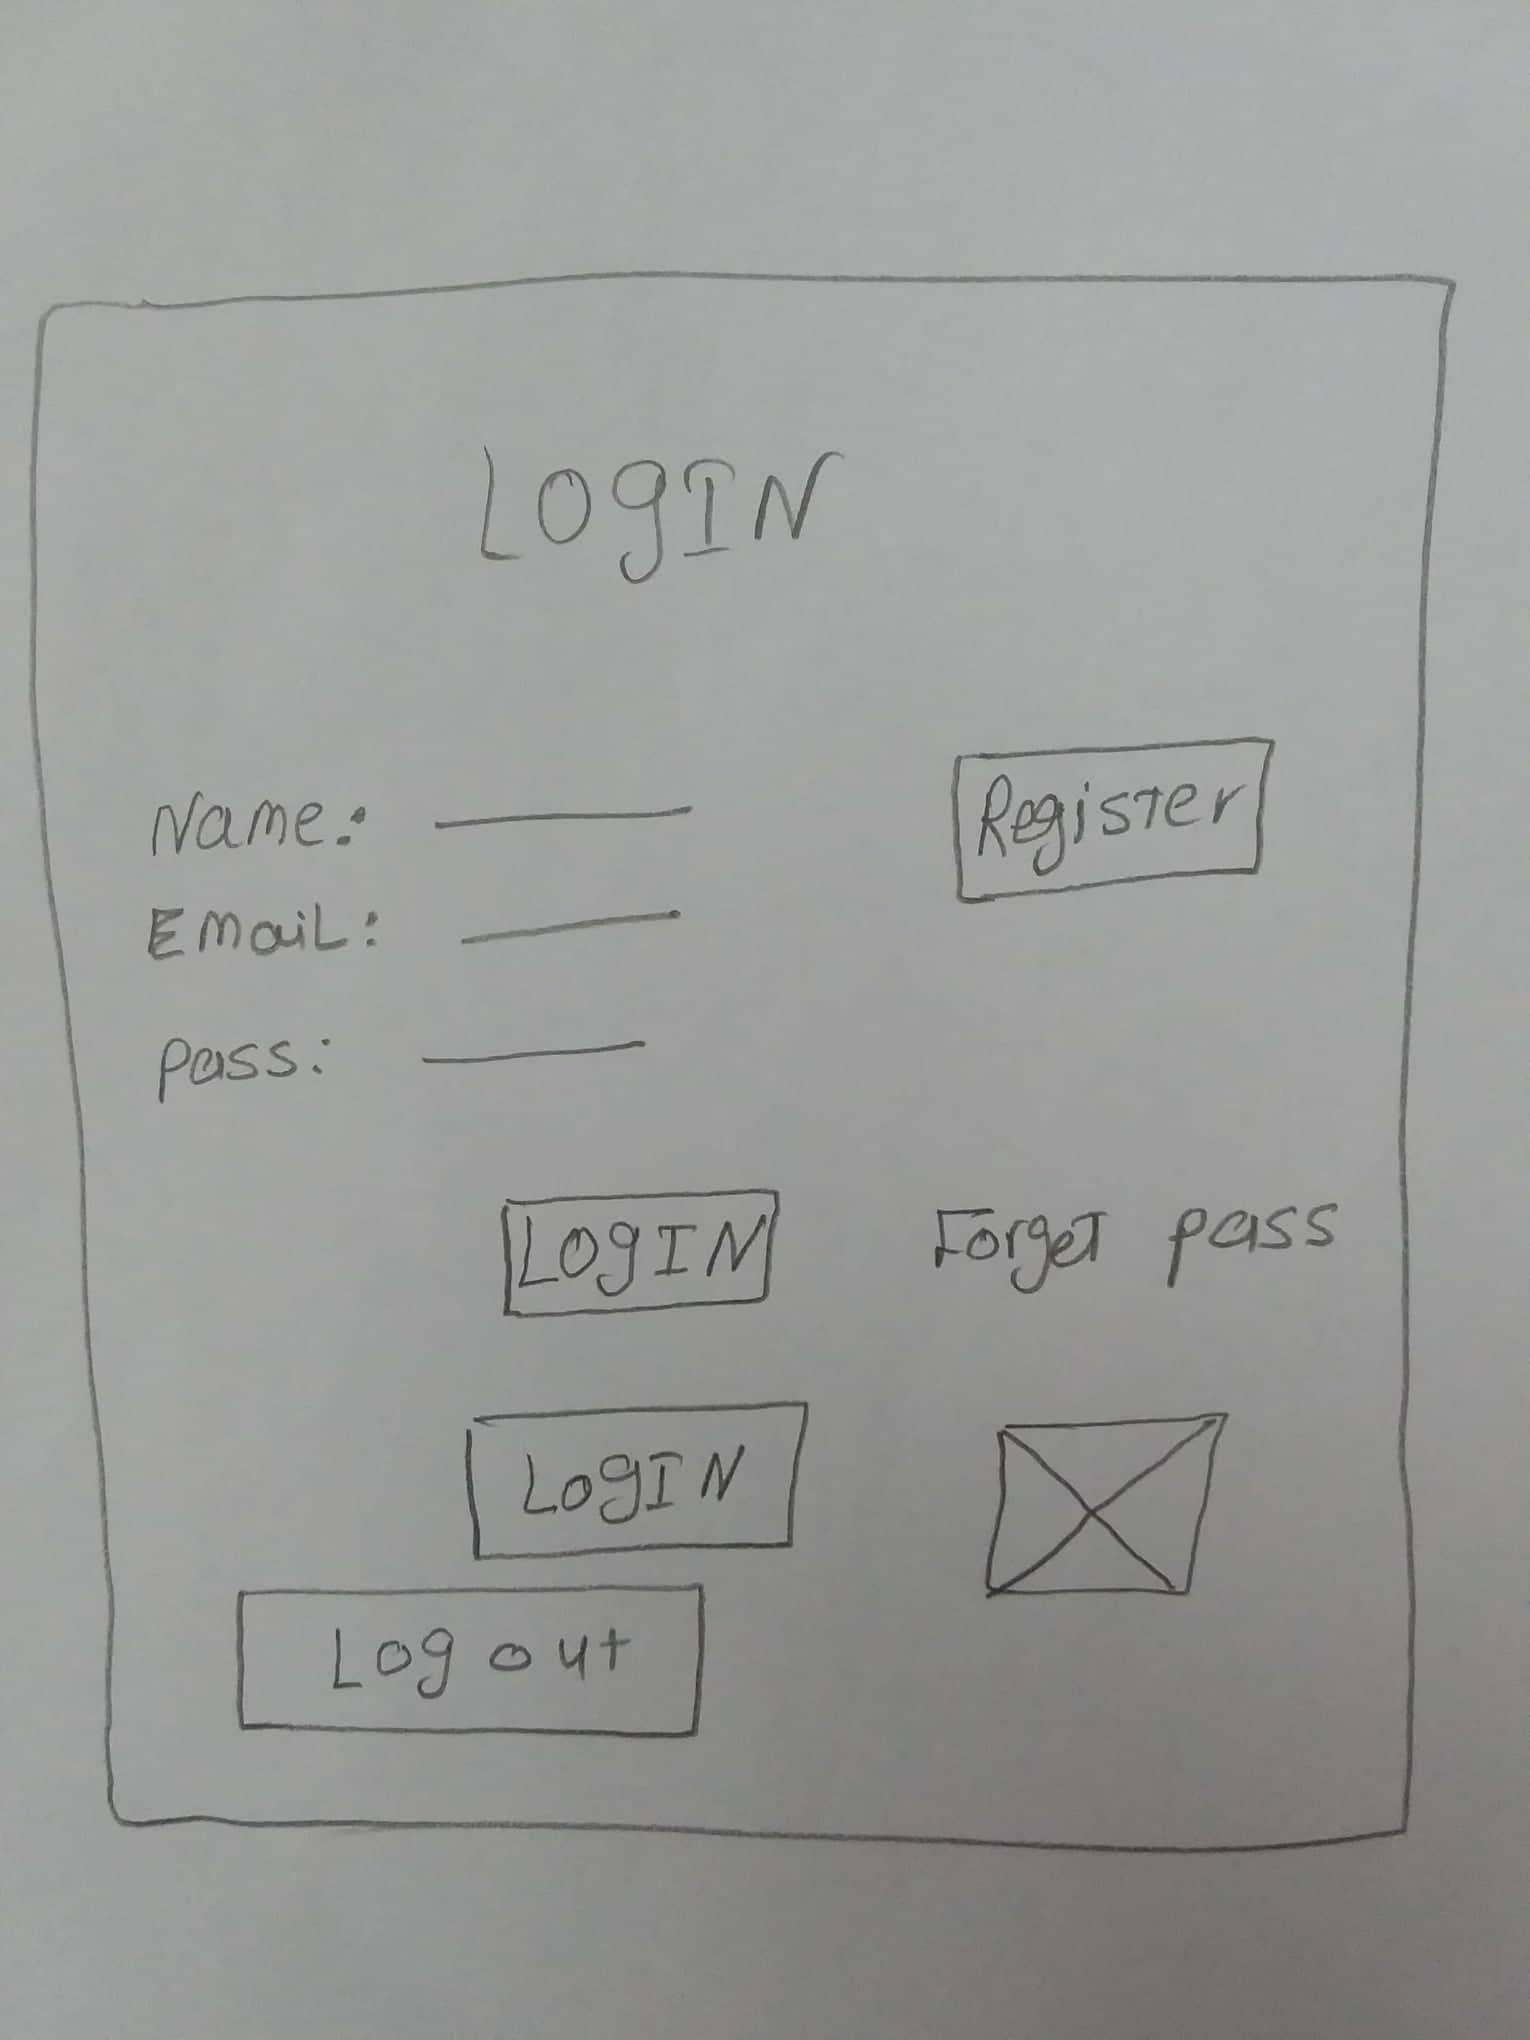 LOGIN
Name:
Register
Email:
pass:
LOGIN
Forget pass
LOGIN
Log out